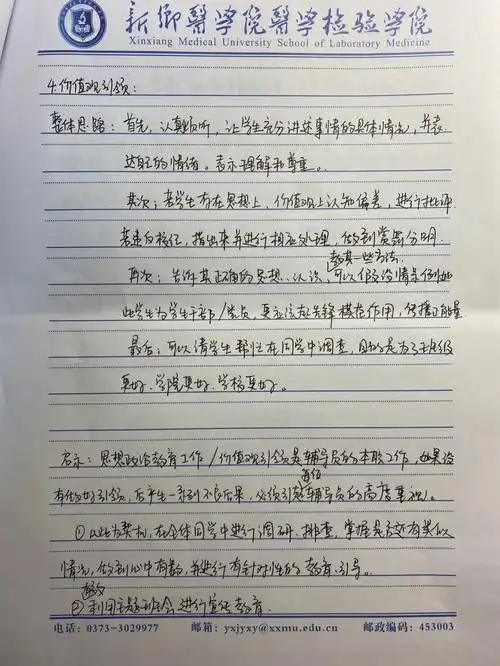 新鄉醫學院醫學檢驗學院
Xinxiang Medical University School of Laboratory Medicine
4.价值观引领：
整体思路：首先，认真倾听，让学生充分讲述事情的具体情况，并表
达自己的情绪。表示理解和尊重。
其次：若学生存在思想上、价值观上认知偏差，进行批评
若违反校纪，指出来并进行相应处理，做到赏罚分明。
教其一些方法
再次：告诉其正确的思想、认识，可以假设情景例如
此学生为学生干部/党员，更应该起先锋模范作用，传播正能量
最后：可以请学生帮忙在同学中调查，目的是为了班级
更好、学院更好、学校更好。
启示：思想政治教育工作/价值观引领是辅导员的本职工作，如果没
有做好引领，后产生一系列不良后果，必须引起辅导员的高度重视。
①以此为契机，在全体同学中进行调研、排查，掌握是否还有类似
情况，做到心中有数，并进行有针对性的教育、引导。
②利用主题班会进行宣传教育
电话：0373-3029977 邮箱：yxjyxy@xxmu.edu.cn 邮政编码：453003